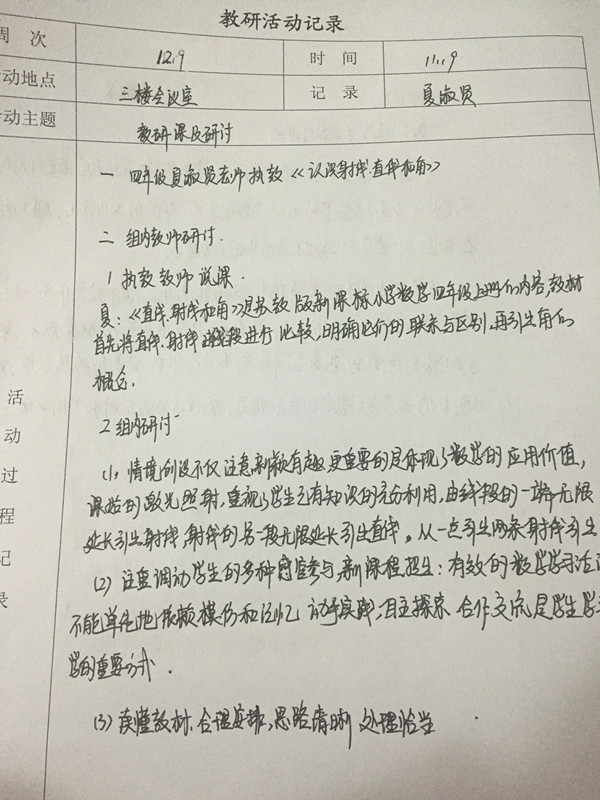 教研活动记录
周 次 12.9 时 间 11.9
活动地点 三楼会议室 记 录 夏淑员
活动主题 教研课及研讨
一 四年级夏淑员老师执教《认识射线直线和角》
二 组内教师研讨.
1 执教教师说课.
夏:《直线、射线和角》是苏教版新课标小学数学四年级上册的内容,教材
首先将直线、射线 线段进行比较,明确它们的联系与区别,再引出角的
概念.
2 组内研讨:
(1), 情境创设不仅注意新颖有趣更重要的是体现了数学的应用价值,
课始的激光照射,重视了学生已有知识的充分利用,由线段的一端无限
延长引出射线,射线的另一段无限延长引出直线。从一点引出两条射线引出
(2) 注重调动学生的多种感官参与,新课程指出:有效的数学学习活
不能单纯地依赖模仿和记忆 动手实践、自主探索 合作交流是学生学
学的重要方式.
(3) 读懂教材、合理安排,思路清晰 处理恰当
活
动
过
程
记
录